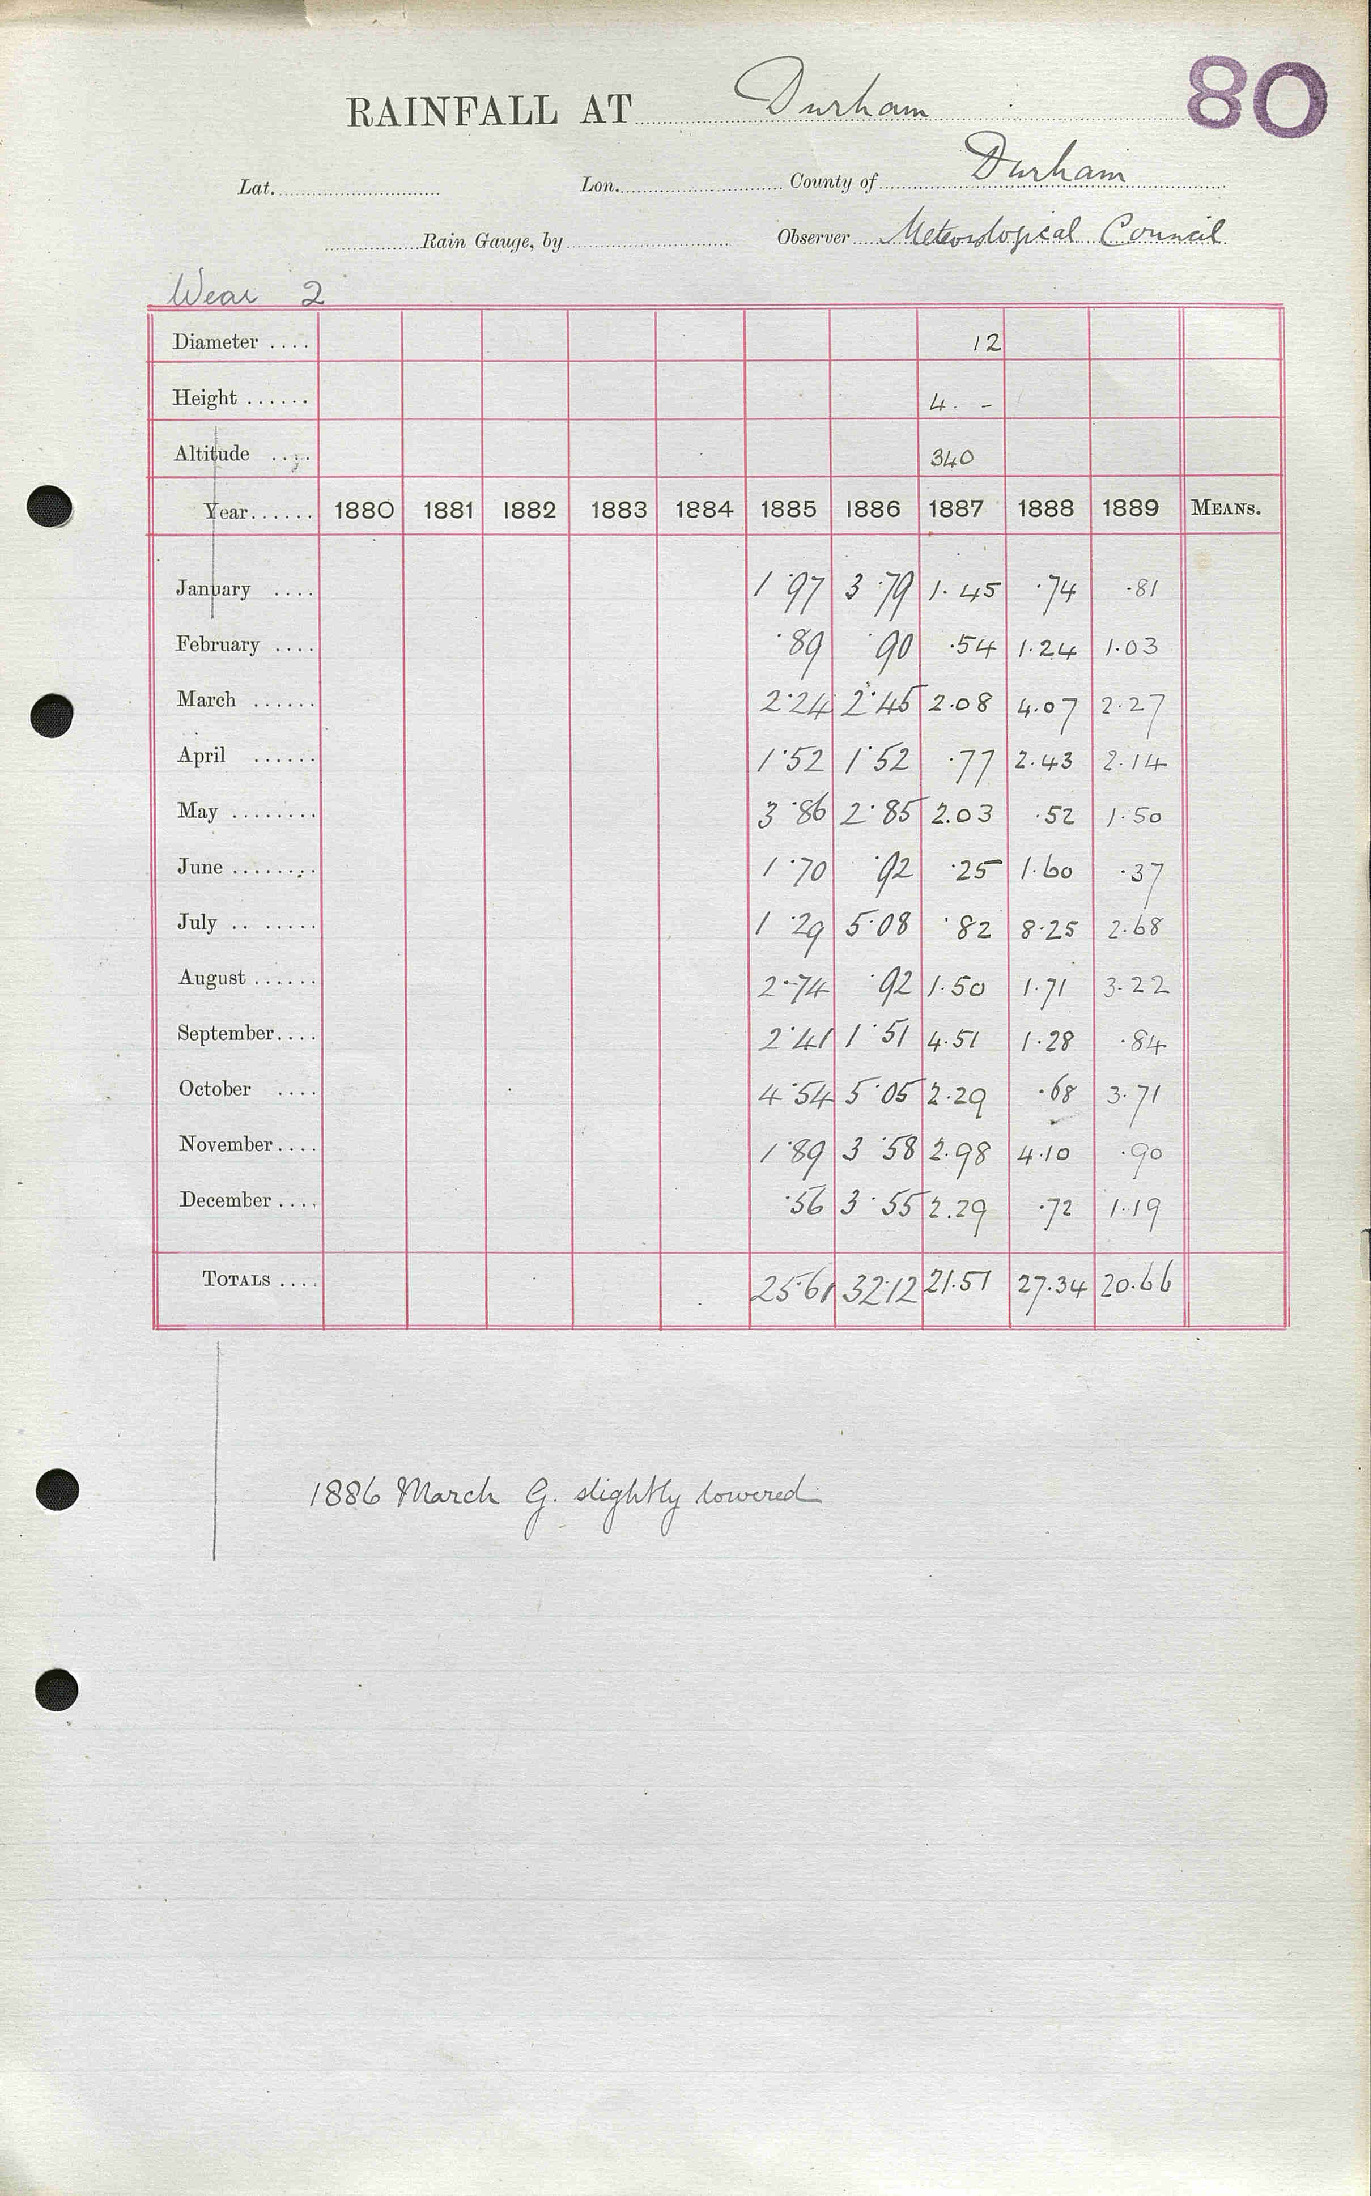 80
RAINFALL AT Durham
Lat. Lon. County of Durham
Rain Gauge, by Observer Meteorological Council
Wear 2
Diameter .... 12
Height ...... 4. -
Altitude .... 340
Year...... 1880 1881 1882 1883 1884 1885 1886 1887 1888 1889 MEANS.
January .... 1.97 3.79 1.45 .74 .81
February .... .89 .90 .54 1.24 1.03
March ...... 2.24 2.45 2.08 4.07 2.27
April ...... 1.52 1.52 .77 2.43 2.14
May ........ 3.86 2.85 2.03 .52 1.50
June ........ 1.70 .92 .25 1.60 .37
July .. ...... 1.29 5.08 .82 8.25 2.68
August ...... 2.74 .92 1.50 1.71 3.22
September.... 2.41 1.51 4.51 1.28 .84
October .... 4.54 5.05 2.29 .68 3.71
November.... 1.89 3.58 2.98 4.10 .90
December .... .56 3.55 2.29 .72 1.19
TOTALS .... 25.61 32.12 21.51 27.34 20.66
1886 March G. slightly lowered